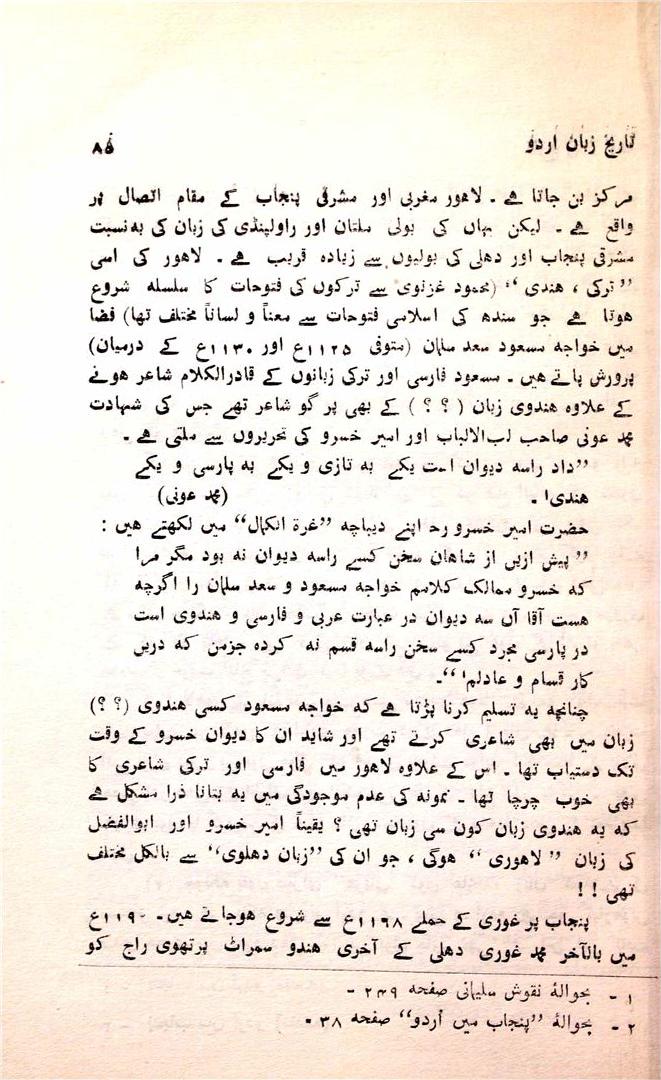 تاریخ زبان اردو
۸۵
مرکز بن جاتا ہے ۔ لاھور مغربی اور مشرقی پنجاب کے مقام اتصال پر
واقع ہے ۔ لیکن یہاں کی بولی ملتان اور راولپنڈی کی زبان کی بہ نسبت
مشرقی پنجاب اور دھلی کی بولیوں سے زیادہ قریب ہے ۔ لاھور کی اسی
”ترکی ، ھندی“ (محمود غزنوی سے ترکوں کی فتوحات کا سلسلہ شروع
ھوتا ہے جو سندھ کی اسلامی فتوحات سے معناً و لساناً مختلف تھا) فضا
میں خواجہ مسعود سعد سلمان (متوفی ۱۱۲۵ع اور ۱۱۳۰ع کے درمیان)
پرورش پاتے ھیں ۔ مسعود فارسی اور ترکی زبانوں کے قادرالکلام شاعر ھونے
کے علاوہ ھندوی زبان (؟ ؟) کے بھی پر گو شاعر تھے جس کی شہادت
محمد عوفی صاحب لب الالباب اور امیر خسرو کی تحریروں سے ملتی ہے ۔
”داد راسہ دیوان است یکے بہ تازی و یکے بہ پارسی و یکے
ھندی۱ ۔ (محمد عوفی)
حضرت امیر خسرو رح اپنے دیباچہ ”غرۃ الکمال“ میں لکھتے ھیں :
”پیش ازیں از شاھان سخن کسے راسہ دیوان نہ بود مگر مرا
کہ خسرو ممالک کلامم خواجہ مسعود و سعد سلمان را اگرچہ
ھست آقا آں سہ دیوان در عبارت عربی و فارسی و ھندوی است
در پارسی مجرد کسے سخن راسہ قسم نہ کردہ جزمن کہ دریں
کار قسام و عادلم۲“ ۔
چنانچہ یہ تسلیم کرنا پڑتا ہے کہ خواجہ مسعود کسی ھندوی (؟ ؟)
زبان میں بھی شاعری کرتے تھے اور شاید ان کا دیوان خسرو کے وقت
تک دستیاب تھا ۔ اس کے علاوہ لاھور میں فارسی اور ترکی شاعری کا
بھی خوب چرچا تھا ۔ نمونہ کی عدم موجودگی میں یہ بتانا ذرا مشکل ہے
کہ یہ ھندوی زبان کون سی زبان تھی ؟ یقیناً امیر خسرو اور ابوالفضل
کی زبان ”لاھوری“ ھوگی ، جو ان کی ”زبان دھلوی“ سے بالکل مختلف
تھی ! !
پنجاب پر غوری کے حملے ۱۱۶۸ع سے شروع ھوجاتے ھیں ۔ ۱۱۹۰ع
میں بالآخر محمد غوری دھلی کے آخری ھندو سمراٹ پرتھوی راج کو
۱ ۔ بحوالۂ نقوش سلیمانی صفحہ ۲۴۹ ۔
۲ ۔ بحوالۂ ”پنجاب میں اُردو“ صفحہ ۳۸ ۔